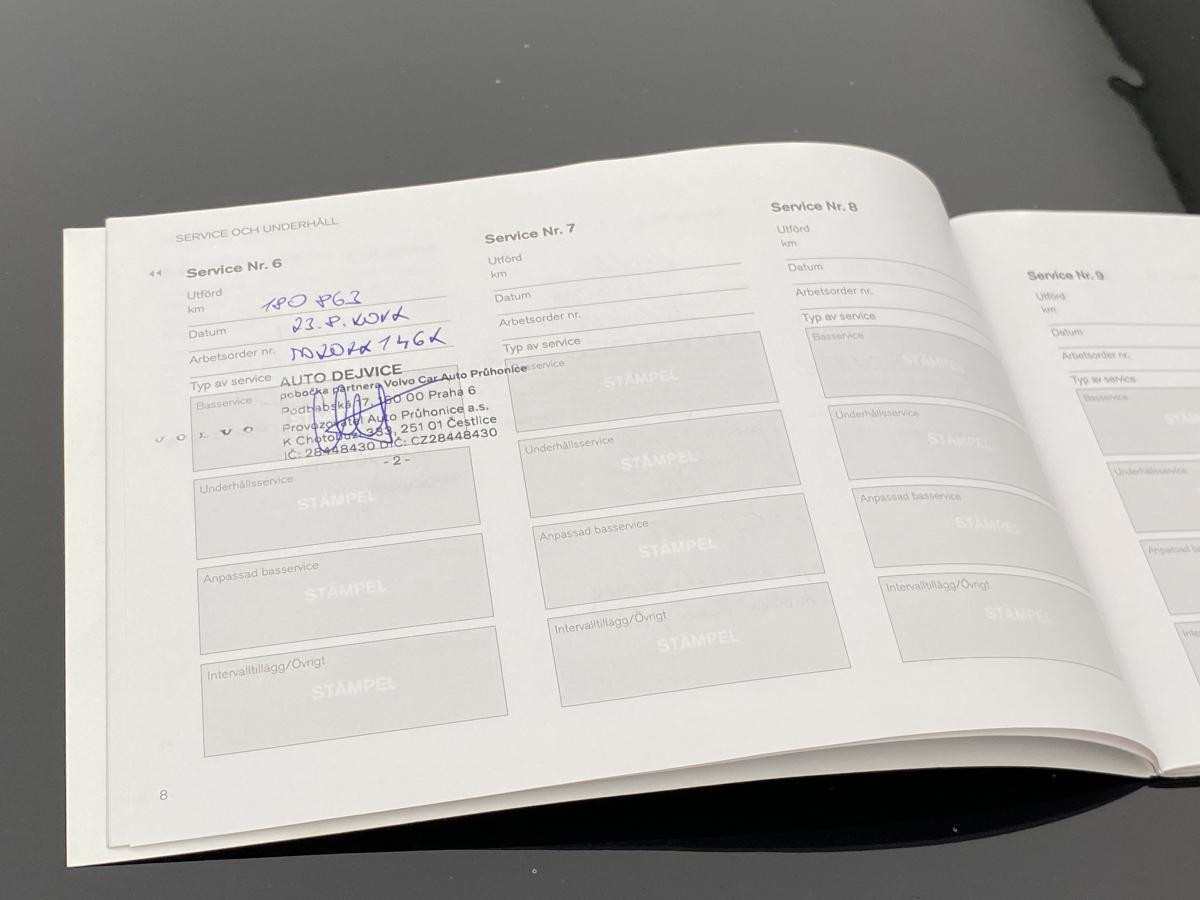 SERVICE OCH UNDERHÅLL
Service Nr. 6
Utförd
km 180 863
Datum 23.8.2022
Arbetsorder nr.
Typ av service
Basservice
VOLVO
AUTO DEJVICE
pobočka partnera Volvo Car Auto Průhonice
Podbabská 17, 160 00 Praha 6
Provozovatel Auto Průhonice a.s.
K Chotobuzi 333, 251 01 Čestlice
IČ: 28448430 DIČ: CZ28448430
- 2 -
Underhållsservice
STÄMPEL
Anpassad basservice
STÄMPEL
Intervalltillägg/Övrigt
STÄMPEL
8
Service Nr. 7
Utförd
km
Datum
Arbetsorder nr.
Typ av service
STÄMPEL
Underhållsservice
STÄMPEL
Anpassad basservice
STÄMPEL
Intervalltillägg/Övrigt
STÄMPEL
Service Nr. 8
Utförd
km
Datum
Arbetsorder nr.
Typ av service
Basservice
STÄMPEL
Underhållsservice
STÄMPEL
Anpassad basservice
STÄMPEL
Intervalltillägg/Övrigt
STÄMPEL
Service Nr. 9
Utförd
km
Datum
Arbetsorder nr.
Typ av service
Basservice
Underhållsservice